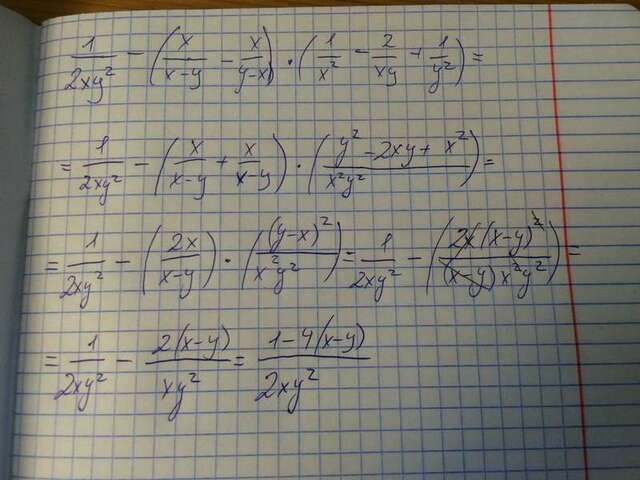 1/(2xy²) − (x/(x−y) − x/(y−x)) · (1/x² − 2/(xy) + 1/y²) =
= 1/(2xy²) − (x/(x−y) + x/(x−y)) · ((y² − 2xy + x²)/(x²y²)) =
= 1/(2xy²) − (2x/(x−y)) · ((y−x)²/(x²y²)) = 1/(2xy²) − (2x(x−y)²/((x−y)x²y²)) =
= 1/(2xy²) − 2(x−y)/(xy²) = (1−4(x−y))/(2xy²)